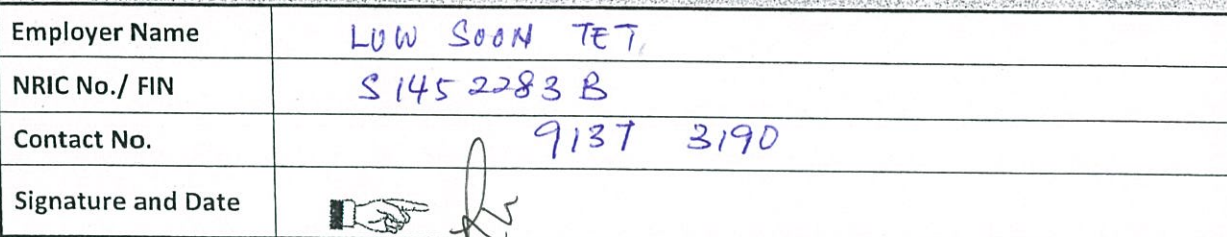 Employer Name LOW SOON TET
NRIC No./ FIN S1452283B
Contact No. 9137 3190
Signature and Date